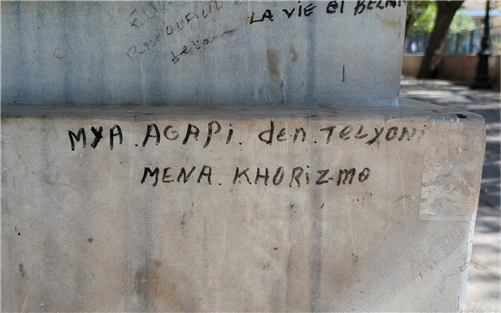 LA VIE EI BELAI
MYA. AGAPi. den. TELYONi
MENA. KHORiZMO